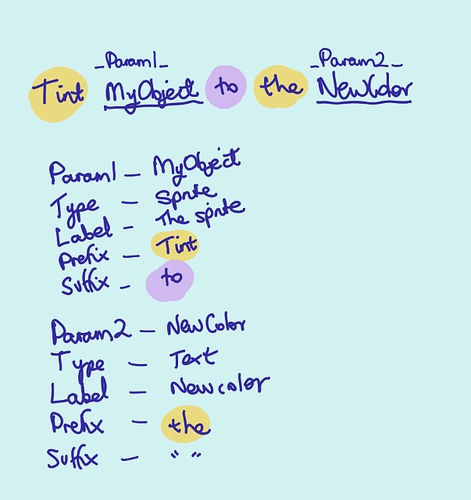 _Param1_ _Param2_
Tint MyObject to the NewColor
Param1 - MyObject
Type - Sprite
Label - The sprite
Prefix - Tint
Suffix - to
Param2 - NewColor
Type - Text
Label - New color
Prefix - the
Suffix - " "